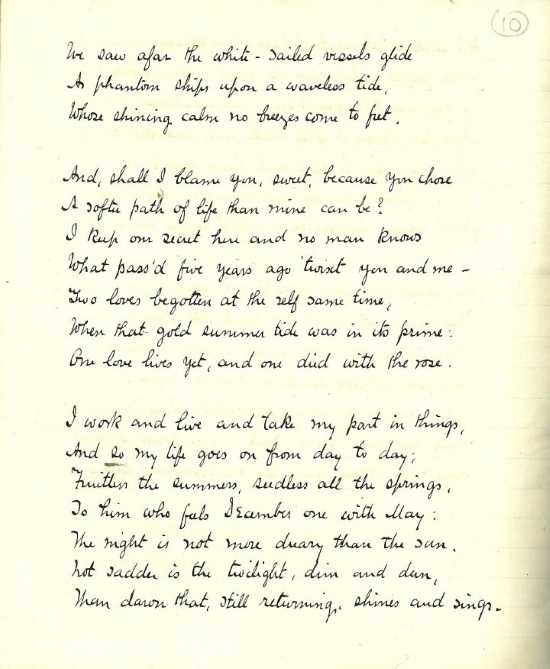 10
We saw afar the white-sailed vessels glide
As phantom ships upon a waveless tide,
Whose shining calm no breezes come to fret.
And, shall I blame you, sweet, because you chose
A softer path of life than mine can be?
I keep our secret here and no man knows
What pass'd five years ago 'twixt you and me -
Two loves begotten at the self same time,
When that gold summer tide was in its prime:
One love lives yet, and one died with the rose.
I work and live and take my part in things,
And so my life goes on from day to day;
Fruitless the summers, seedless all the springs,
To him who feels December one with May:
The night is not more dreary than the sun.
Not sadder is the twilight, dim and dun,
Than dawn that, still returning, shines and sings.